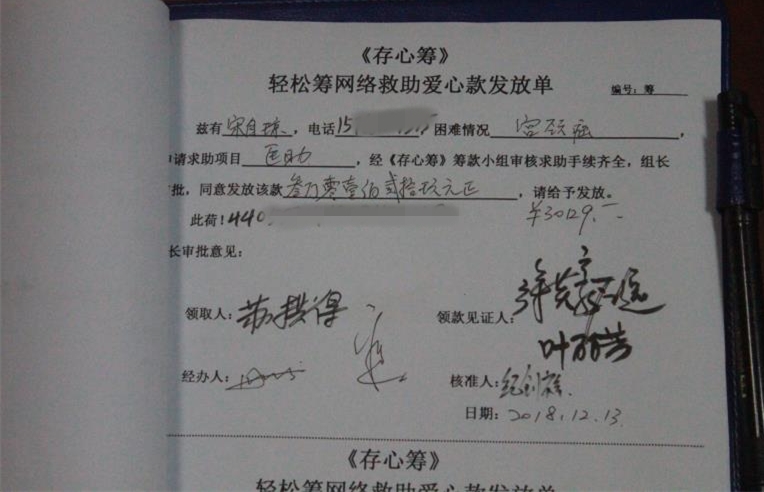 《存心筹》
轻松筹网络救助爱心款发放单
编号：筹
兹有宋自琼，电话15 困难情况 宫颈癌，
申请求助项目 医助，经《存心筹》筹款小组审核求助手续齐全，组长
批，同意发放该款 叁万零壹佰贰拾玖元正，请给予发放。
此荷！440 ¥30129.一
长审批意见：
领取人： 领款见证人：
叶
经办人： 核准人：纪创
日期：2018.12.13
《存心筹》
轻松筹网络救助爱心款发放单